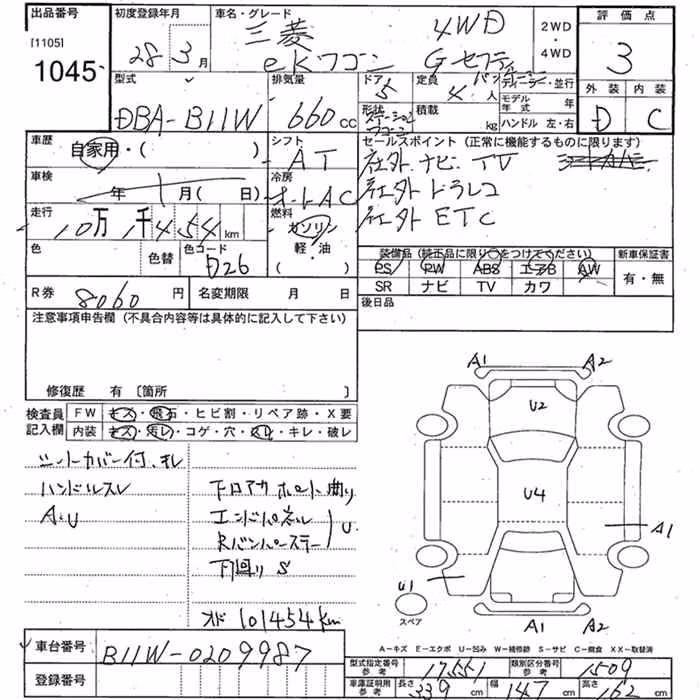 出品番号
[1105]
1045
初度登録年月
28年 3月
車名・グレード
三菱 4WD
eKワゴン Gセーフティ パッケージ
2WD
・
4WD
評価点
3
外装 内装
D C
型式
DBA-B11W
排気量
660 cc
ドア 5
定員 4 人
形状 ステーションワゴン
積載 kg
ディーラー・並行
モデル年式 年
ハンドル 左・右
車歴
自家用・( )
シフト
AT
車検
年 月( 日)
冷房
オートAC
走行
10万 1千454 km
燃料
ガソリン
軽・油
( )
色
色替
色コード
D26
セールスポイント (正常に機能するものに限ります)
社外 ナビ TV
社外 ドラレコ
社外 ETC
装備品 (純正品に限り○をつけてください)
PS PW ABS エアB AW
SR ナビ TV カワ
新車保証書
有・無
後日品
R券 8060 円
名変期限 月 日
注意事項申告欄 (不具合内容等は具体的に記入して下さい)
修復歴 有 〔箇所 〕
検査員記入欄
FW キズ・飛石・ヒビ割・リペア跡・X要
内装 キズ・汚レ・コゲ・穴・スレ・キレ・破レ
シートカバー付、キレ
ハンドルスレ
A・U
下ロアカ ホート曲り
エンドパネル
Rバンパーステー U
下回り S
オド 101454km
A1 A2
U2
U4
A1
U1
スペア
A1 A2
A-キズ E-エクボ U-凹み W-補修跡 S-サビ C-腐食 XX-取替済
車台番号
B11W-0209987
登録番号
型式指定番号 参考 17551
類別区分番号 参考 1509
車庫証明用 参考 長さ 339 幅 147 高さ 162 cm